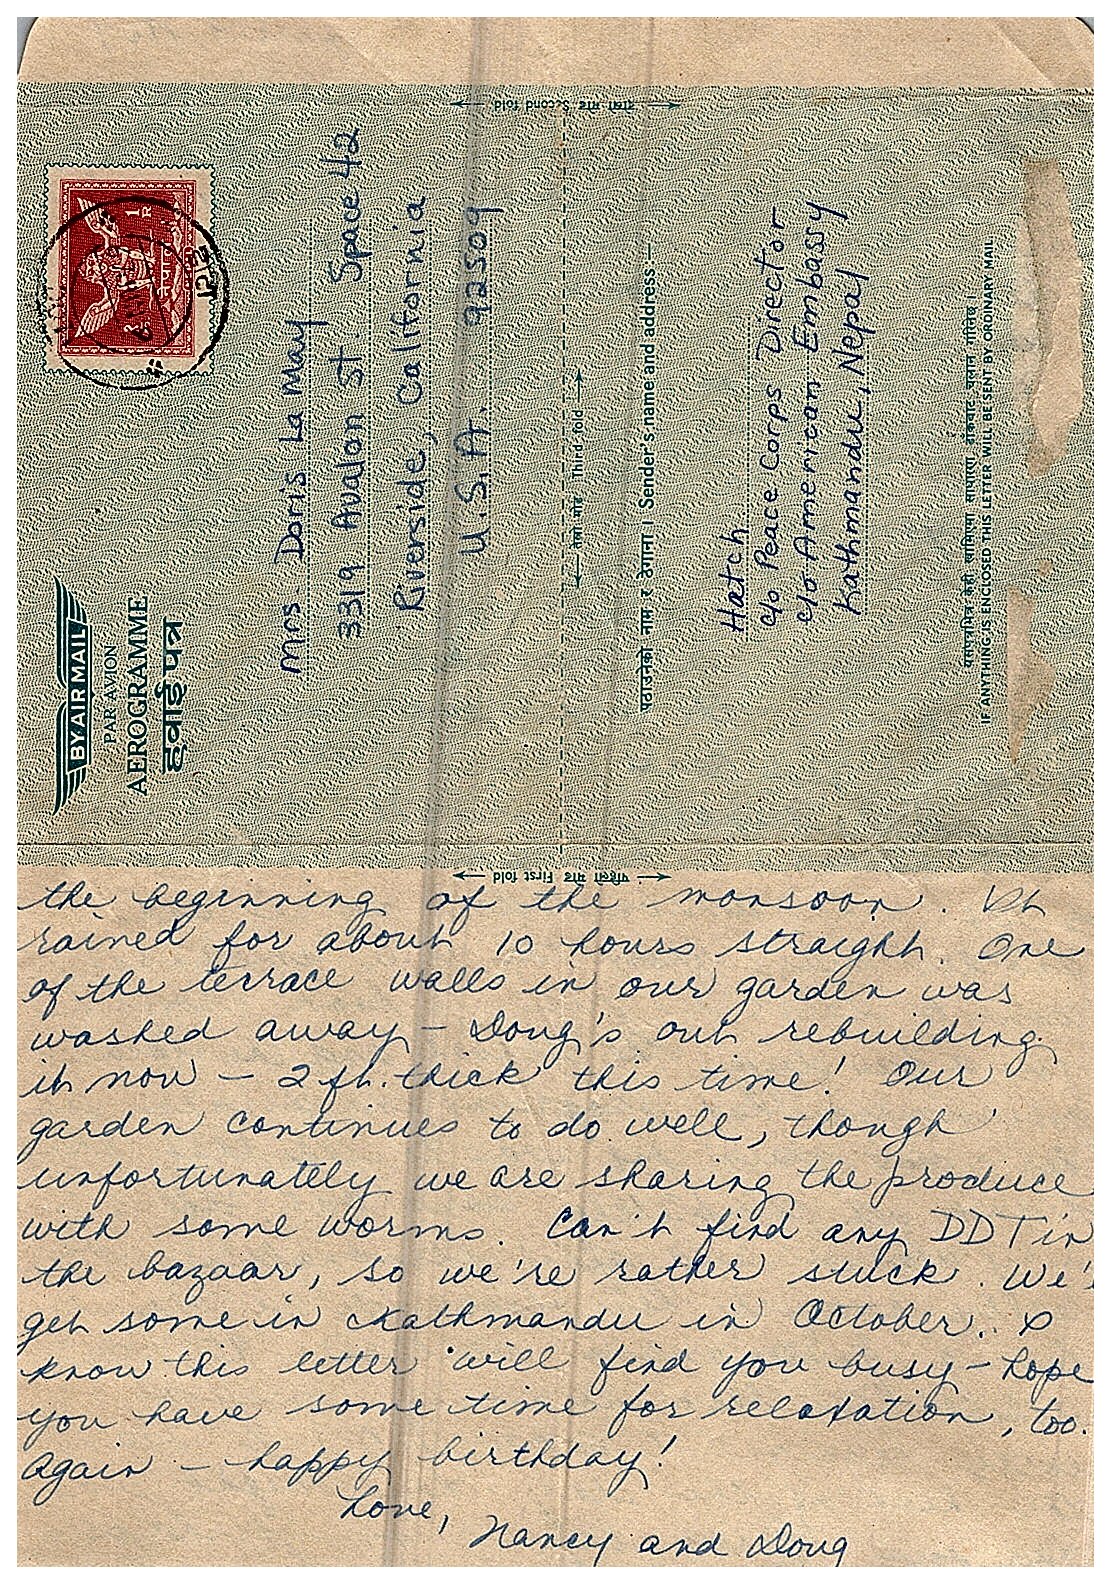 दोस्रो मोड Second fold
BY AIR MAIL
PAR AVION
AEROGRAMME
हवाई पत्र
1
R
नेपाल
Mrs. Doris La May
3319 Avalon St. Space 42
Riverside, California
U.S.A. 92509
तेस्रो मोड Third fold
पठाउनेको नाम र ठेगाना । Sender's name and address
Hatch
c/o Peace Corps Director
c/o American Embassy
Kathmandu, Nepal
यसपत्रभित्र केही खामिएमा साधारण डाँकबाट चलान गरिनेछ ।
IF ANYTHING IS ENCLOSED THIS LETTER WILL BE SENT BY ORDINARY MAIL
पहिलो मोड First fold
the beginning of the monsoon. It
rained for about 10 hours straight. One
of the terrace walls in our garden was
washed away – Doug's out rebuilding
it now – 2 ft. thick this time! Our
garden continues to do well, though
unfortunately we are sharing the produce
with some worms. Can't find any DDT in
the bazaar, so we're rather stuck. We'll
get some in Kathmandu in October. I
know this letter will find you busy – hope
you have some time for relaxation, too.
Again – happy birthday!
Love,
Nancy and Doug